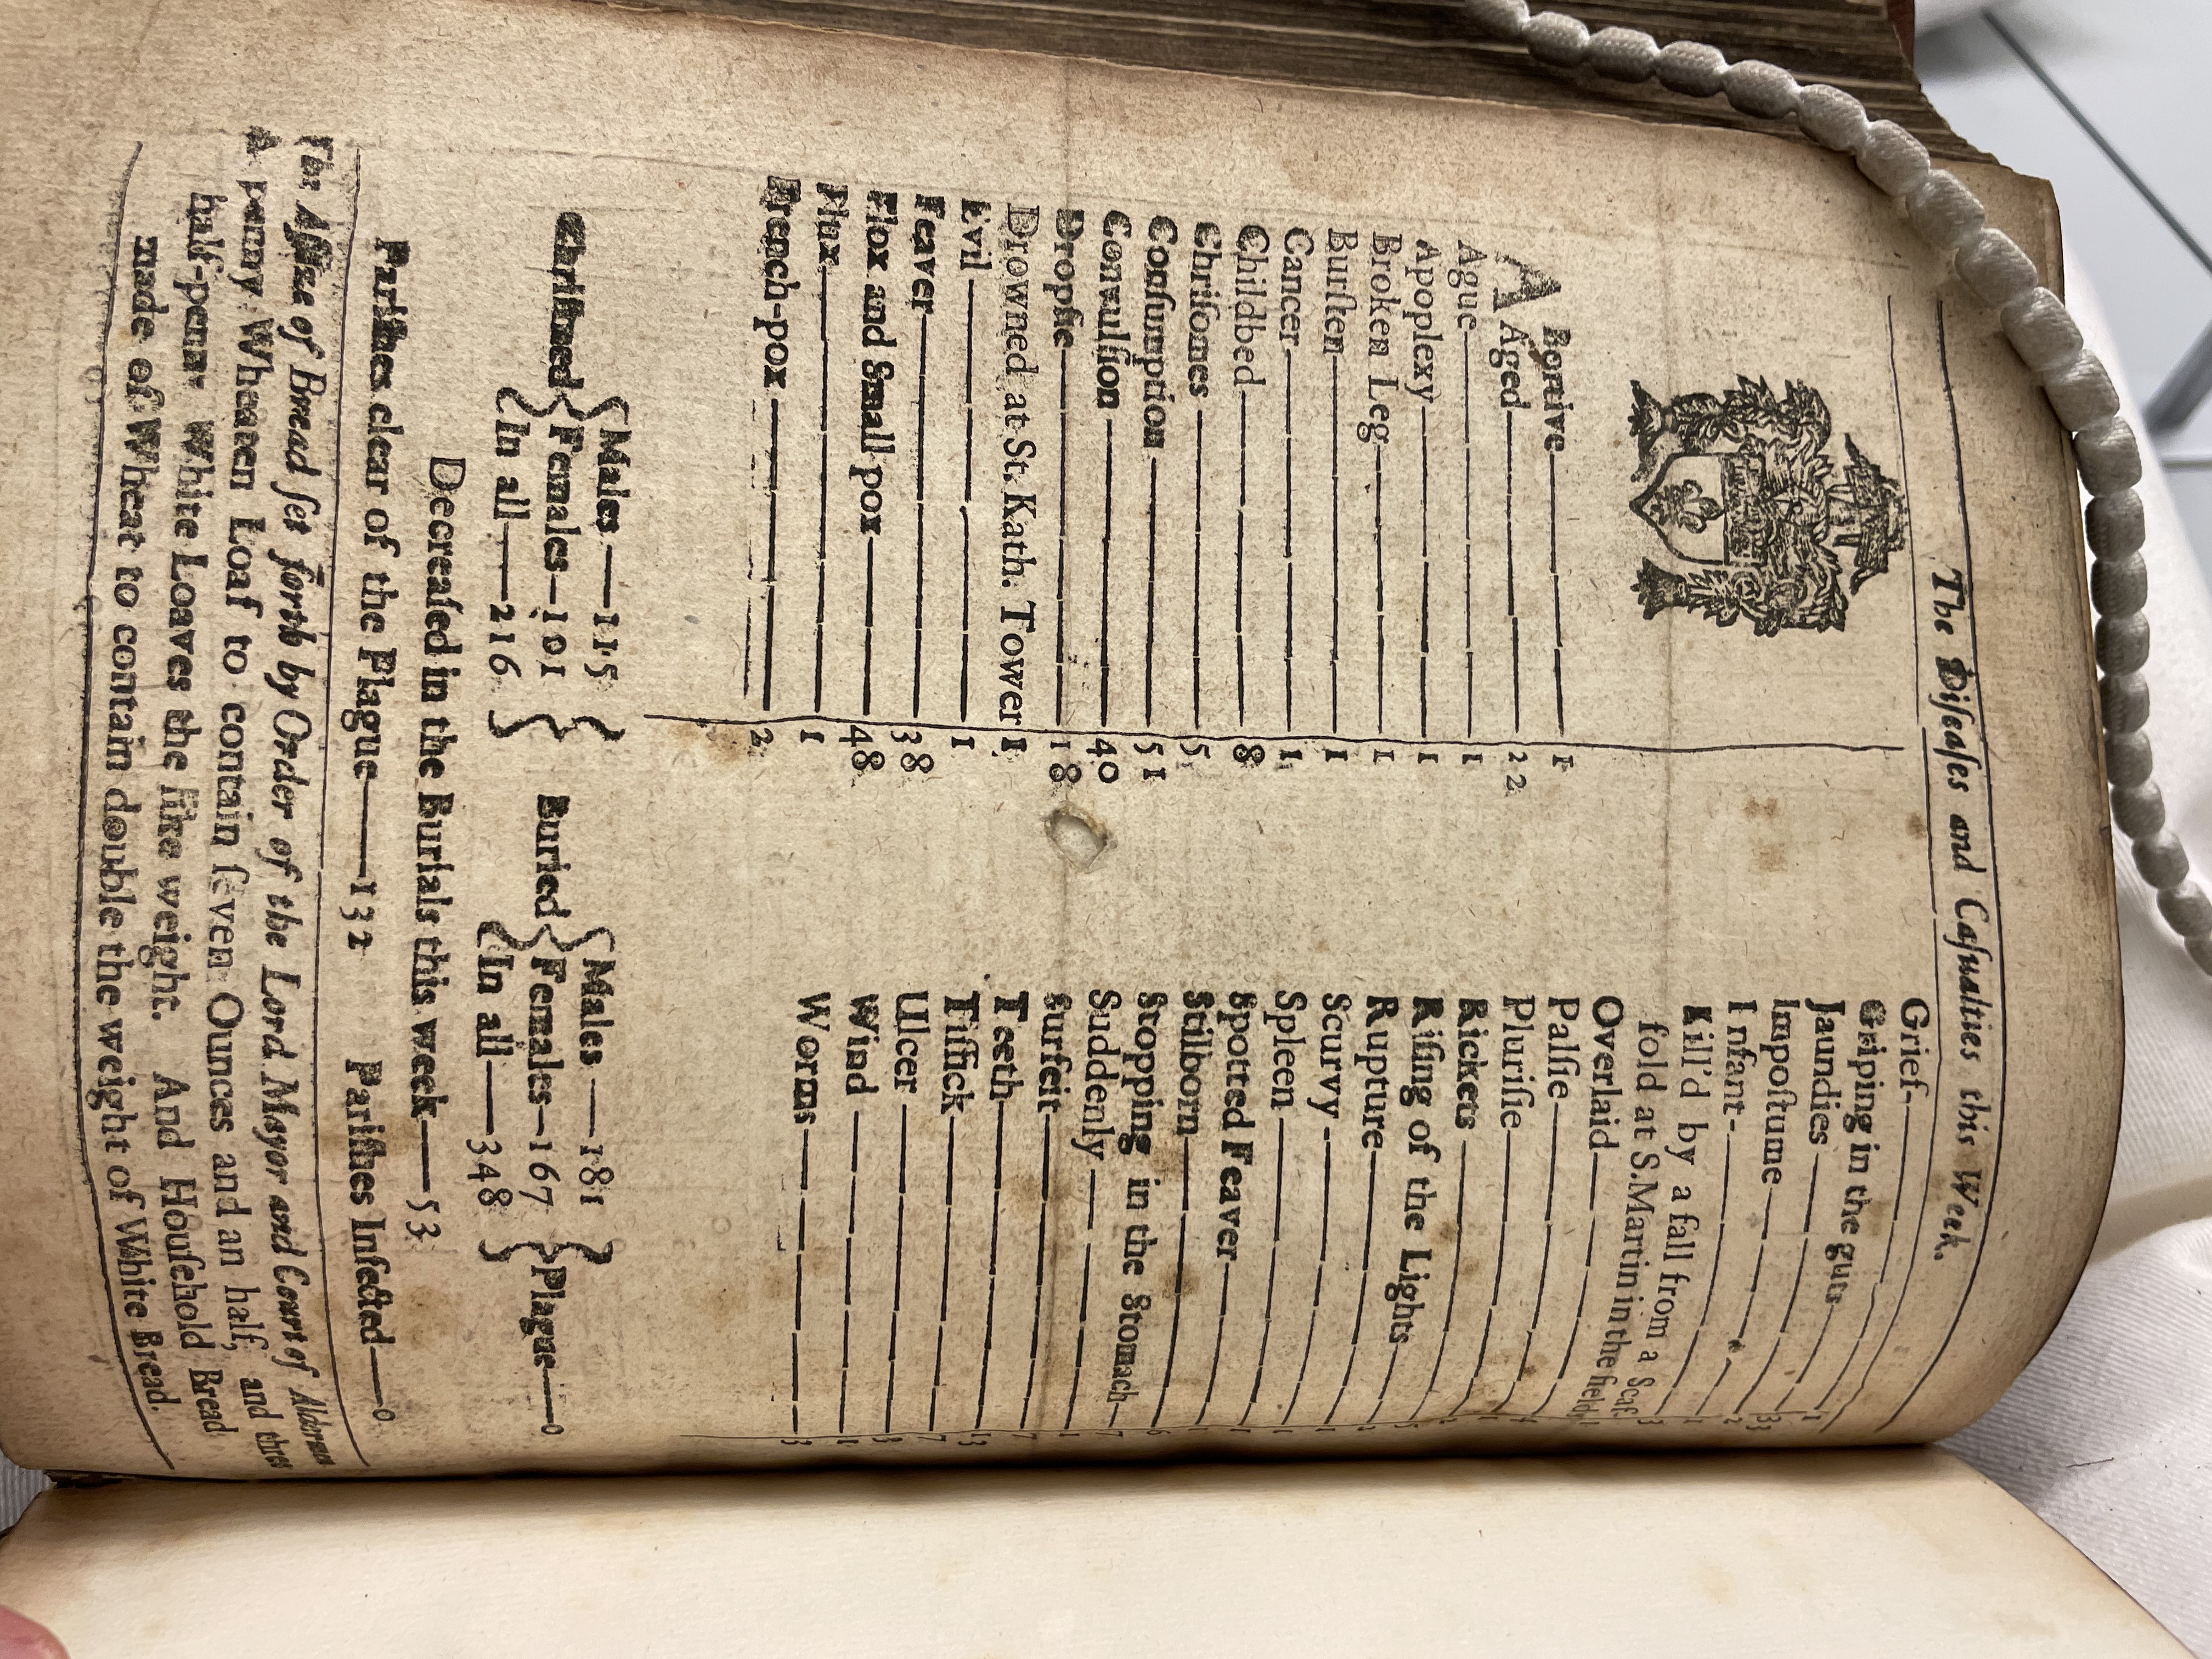 The Diſeaſes and Caſualties this Week.
ABortive 1
Aged 22
Ague 1
Apoplexy 1
Broken Leg 1
Burſten 1
Cancer 1
Childbed 8
Chriſomes 5
Conſumption 51
Convulſion 40
Dropſie 18
Drowned at St. Kath. Tower 1
Evil 1
Feaver 38
Flox and Small-pox 48
Flux 1
French-pox 2
Grief 1
Griping in the guts 33
Jaundies 2
Impoſtume 1
Infant 3
Kill'd by a fall from a Scaf-
fold at S. Martin in the fields 1
Overlaid 4
Palſie 1
Pluriſie 2
Rickets 5
Riſing of the Lights 2
Rupture 1
Scurvy 1
Spleen 1
Spotted Feaver 1
Stilborn 6
Stopping in the Stomach 7
Suddenly 1
Surfeit 7
Teeth 13
Tiſſick 7
Ulcer 3
Wind 1
Worms 3
Chriſtned { Males — 115 Females — 101 In all — 216 }
Buried { Males — 181 Females — 167 In all — 348 } Plague — 0
Decreaſed in the Burials this week — 53
Pariſhes clear of the Plague — 132 Pariſhes Infected — 0
The Aſſize of Bread ſet forth by Order of the Lord Mayor and Court of Aldermen
A penny Wheaten Loaf to contain ſeven Ounces and an half, and three
half-penny White Loaves the like weight. And Houſehold Bread
made of Wheat to contain double the weight of White Bread.